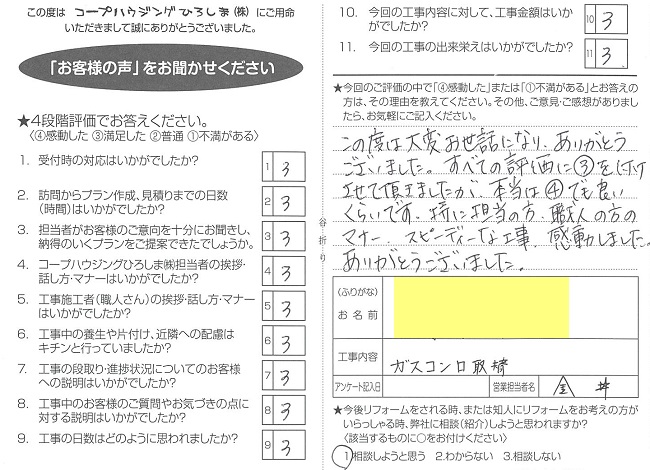 この度は コープハウジングひろしま(株) にご用命
いただきまして誠にありがとうございました。
「お客様の声」をお聞かせください
★4段階評価でお答えください。
〈④感動した ③満足した ②普通 ①不満がある〉
1. 受付時の対応はいかがでしたか?
1 3
2. 訪問からプラン作成、見積りまでの日数
(時間)はいかがでしたか?
2 3
3. 担当者がお客様のご意向を十分にお聞きし、
納得のいくプランをご提案できたでしょうか。
3 3
4. コープハウジングひろしま㈱担当者の挨拶・
話し方・マナーはいかがでしたか?
4 3
5. 工事施工者(職人さん)の挨拶・話し方・マナー
はいかがでしたか?
5 3
6. 工事中の養生や片付け、近隣への配慮は
キチンと行っていましたか?
6 3
7. 工事の段取り・進捗状況についてのお客様
への説明はいかがでしたか?
7 3
8. 工事中のお客様のご質問やお気づきの点に
対する説明はいかがでしたか?
8 3
9. 工事の日数はどのように思われましたか?
9 3
谷折り
10. 今回の工事内容に対して、工事金額はいか
がでしたか?
10 3
11. 今回の工事の出来栄えはいかがでしたか?
11 3
★今回のご評価の中で「④感動した」または「①不満がある」とお答え
の方は、その理由を教えてください。その他、ご意見・ご感想がありまし
たら、お気軽にご記入ください。
この度は大変お世話になり、ありがとう
ございました。すべての評価に③を付け
させて頂きましたが、本当は④でも良い
くらいです。特に担当の方、職人の方の
マナー、スピーディーな工事、感動しました。
ありがとうございました。
(ふりがな)
お名前
工事内容
ガスコンロ取替
アンケート記入日
営業担当者名
金井
★今後リフォームをされる時、または知人にリフォームをお考えの方が
いらっしゃる時、弊社に相談(紹介)しようと思われますか?
〈該当するものに○をお付けください〉
1.相談しようと思う 2.わからない 3.相談しない